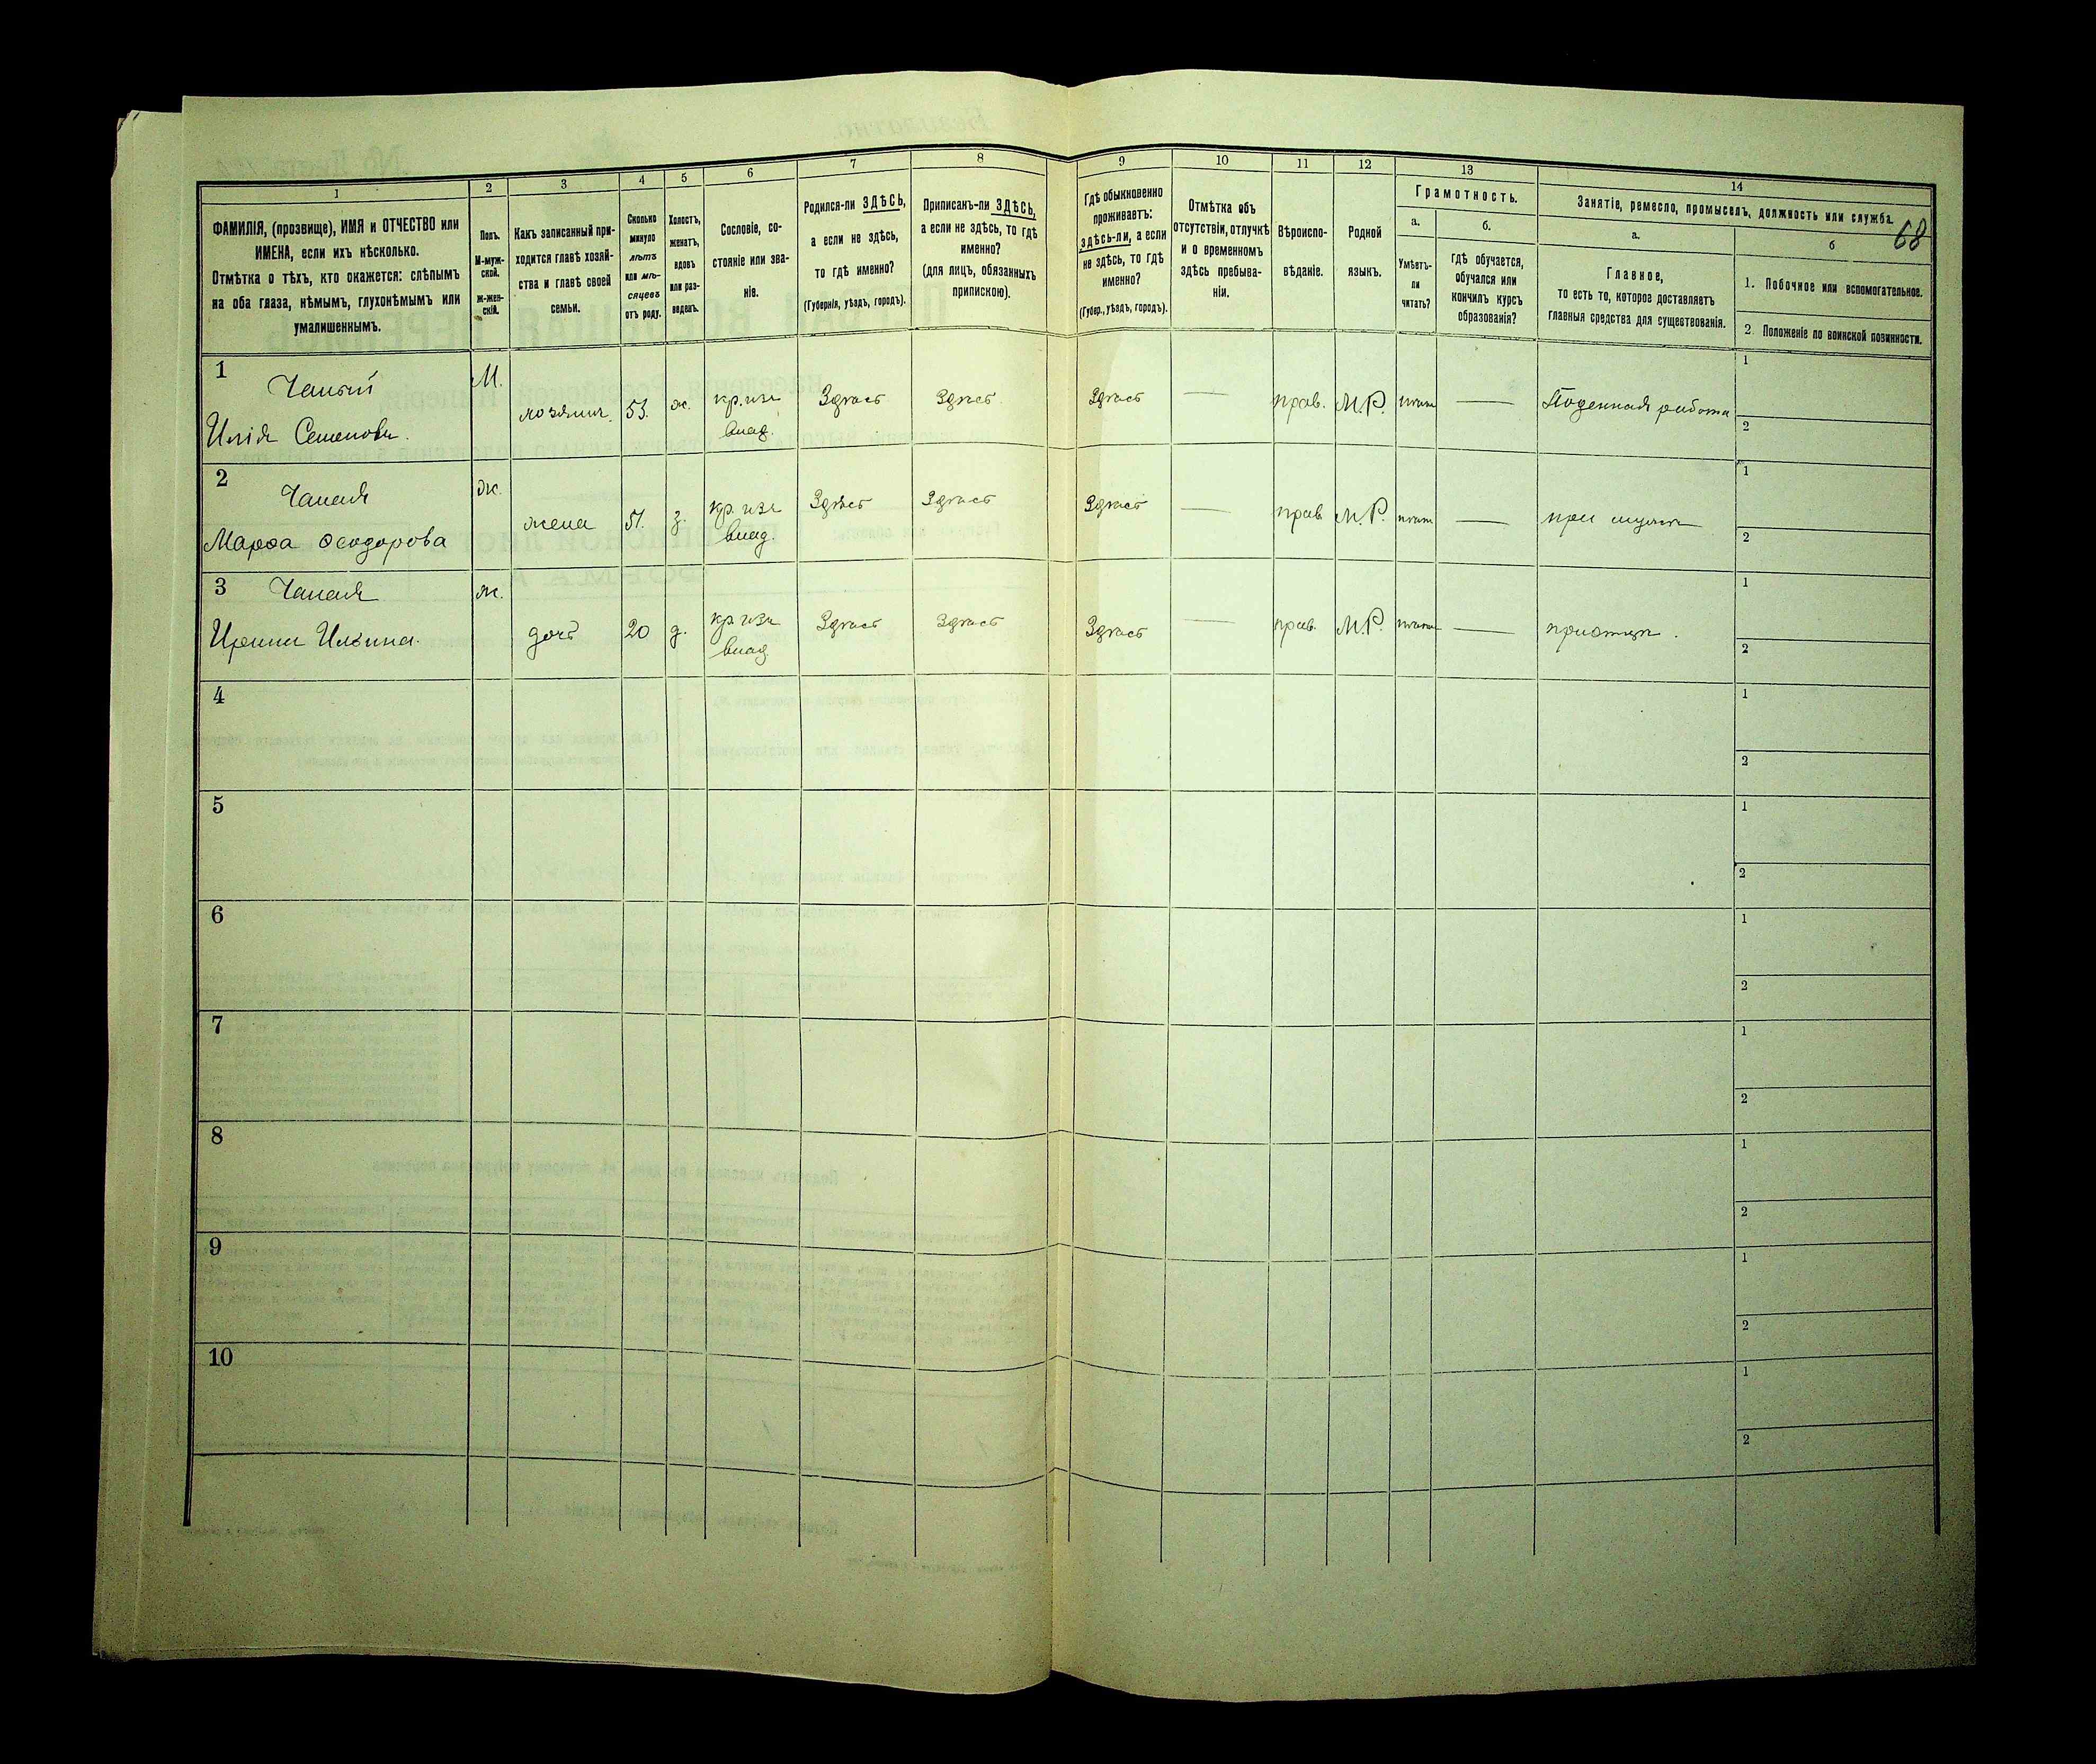 68
1 2 3 4 5 6 7 8 9 10 11 12 13 14
ФАМИЛІЯ, (прозвище), ИМЯ и ОТЧЕСТВО или
ИМЕНА, если ихъ нѣсколько.
Отмѣтка о тѣхъ, кто окажется: слѣпымъ
на оба глаза, нѣмымъ, глухонѣмымъ или
умалишеннымъ.
Полъ.
М-муж-
ской.
Ж-жен-
скій.
Какъ записанный при-
ходится главѣ хозяй-
ства и главѣ своей
семьи.
Сколько
минуло
лѣтъ
или мѣ-
сяцевъ
отъ роду.
Холостъ,
женатъ,
вдовъ
или раз-
веденъ.
Сословіе, со-
стояніе или зва-
ніе.
Родился-ли ЗДѢСЬ,
а если не здѣсь,
то гдѣ именно?
(Губернія, уѣздъ, городъ).
Приписанъ-ли ЗДѢСЬ,
а если не здѣсь, то гдѣ
именно?
(для лицъ, обязанныхъ
припискою).
Гдѣ обыкновенно
проживаетъ:
здѣсь-ли, а если
не здѣсь, то гдѣ
именно?
(Губер., уѣздъ, городъ).
Отмѣтка объ
отсутствіи, отлучкѣ
и о временномъ
здѣсь пребыва-
ніи.
Вѣроиспо-
вѣданіе.
Родной
языкъ.
Грамотность.
а.
Умѣетъ-
ли
читать?
б.
Гдѣ обучается,
обучался или
кончилъ курсъ
образованія?
Занятіе, ремесло, промыселъ, должность или служба.
а.
Главное,
то есть то, которое доставляетъ
главныя средства для существованія.
б
1. Побочное или вспомогательное.
2. Положеніе по воинской повинности.
1 М. 1
Илія Семеновъ. хозяинъ 53. ж. кр. изъ Здѣсь Здѣсь Здѣсь — прав. М.Р. — Поденная работа
влад. 2
2 ж. 1
Марѳа Ѳеодорова жена 51. з. кр. изъ Здѣсь Здѣсь Здѣсь — прав. М.Р. — при мужѣ
влад. 2
3 ж. 1
Ильина. дочь 20 д. кр. изъ Здѣсь Здѣсь Здѣсь — прав. М.Р. — при отцѣ.
влад. 2
4 1
2
5 1
2
6 1
2
7 1
2
8 1
2
9 1
2
10 1
2